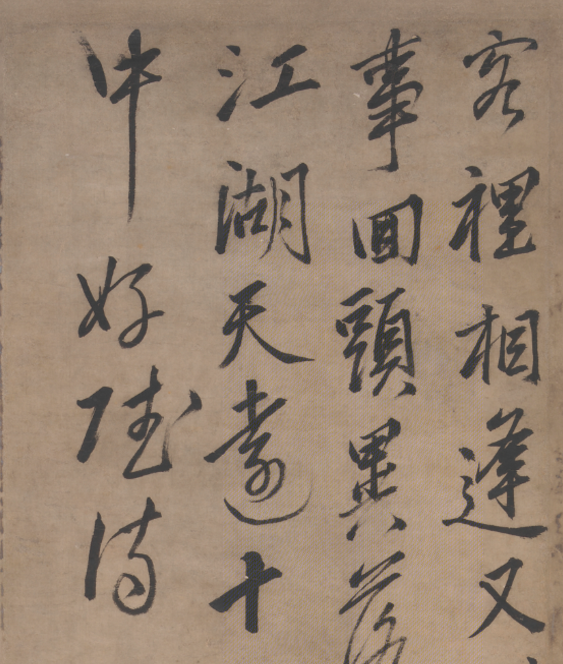 客裡相逢又
事回頭異落
江湖天遠十
中好